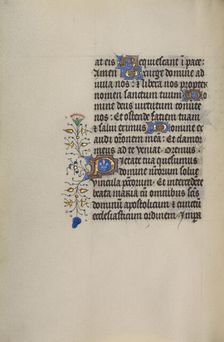 at eis Requiescant i pace
Amen Exurge domine ad
iuua nos: et libera nos propter
nomen sanctum tuum Do
mine deus uirtutum conuerte
nos: Et ostende faciem tuam
et salui erimus Domine ex
audi oronem mea: Et clamor
meus ad te veniat Oremus
Pietate tua quesumus
domine nrorum solue
vincula pccorum: Et intercedente
beata maria cu omnibus scis
domnu apostolicum et cunctu
ecclesiasticum ordinem